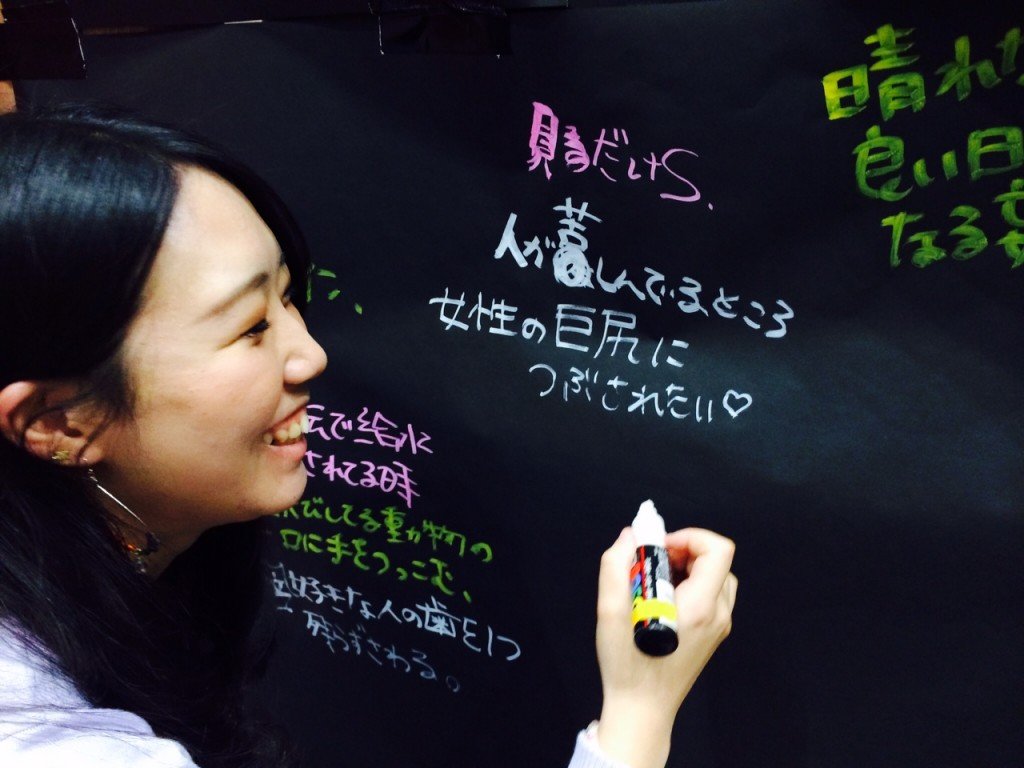 だけS.
人が暮しんでるところ
女性の巨尻に
つぶされたい♡
晴れ
良い日
なる
で給水
されてる時
びしてる動物の
口に手をつっこむ、
好きな人の歯を1つ
残らずさわる。